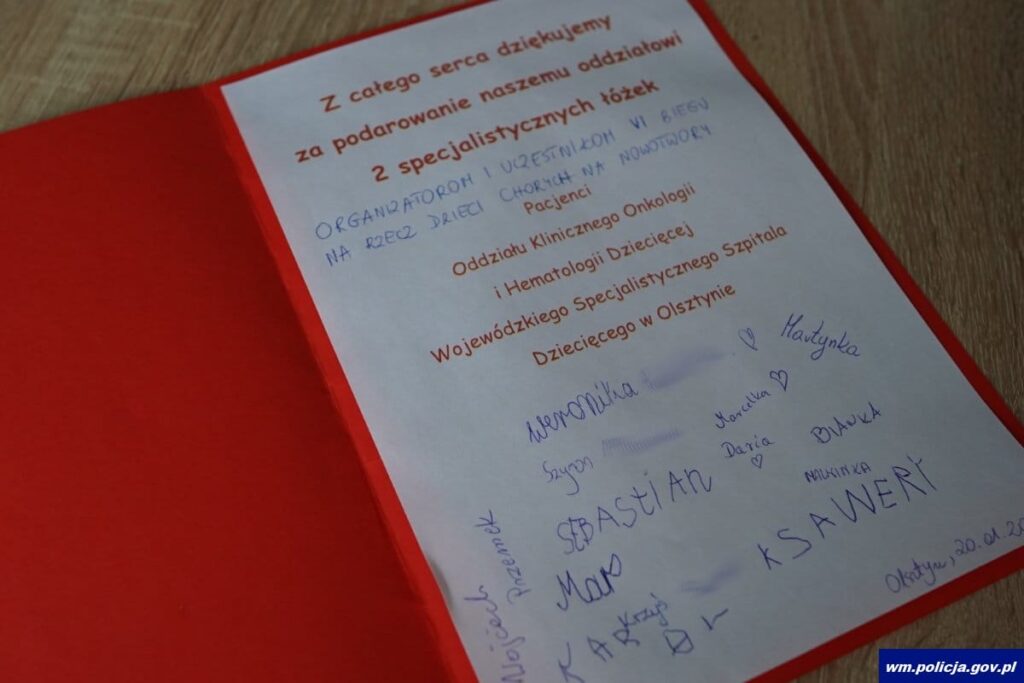 Z całego serca dziękujemy
za podarowanie naszemu oddziałowi
2 specjalistycznych łóżek
ORGANIZATOROM I UCZESTNIKOM VI BIEGU
NA RZECZ DZIECI CHORYCH NA NOWOTWORY
Pacjenci
Oddziału Klinicznego Onkologii
i Hematologii Dziecięcej
Wojewódzkiego Specjalistycznego Szpitala
Dziecięcego w Olsztynie
Weronika ♡ Martynka
Szymon Marcelka ♡
Daria ♡ BLANKA
SEBASTIAN
KSAWERY
Przemek
Wojciech
Krzyś
Olsztyn, 20.01.20
wm.policja.gov.pl